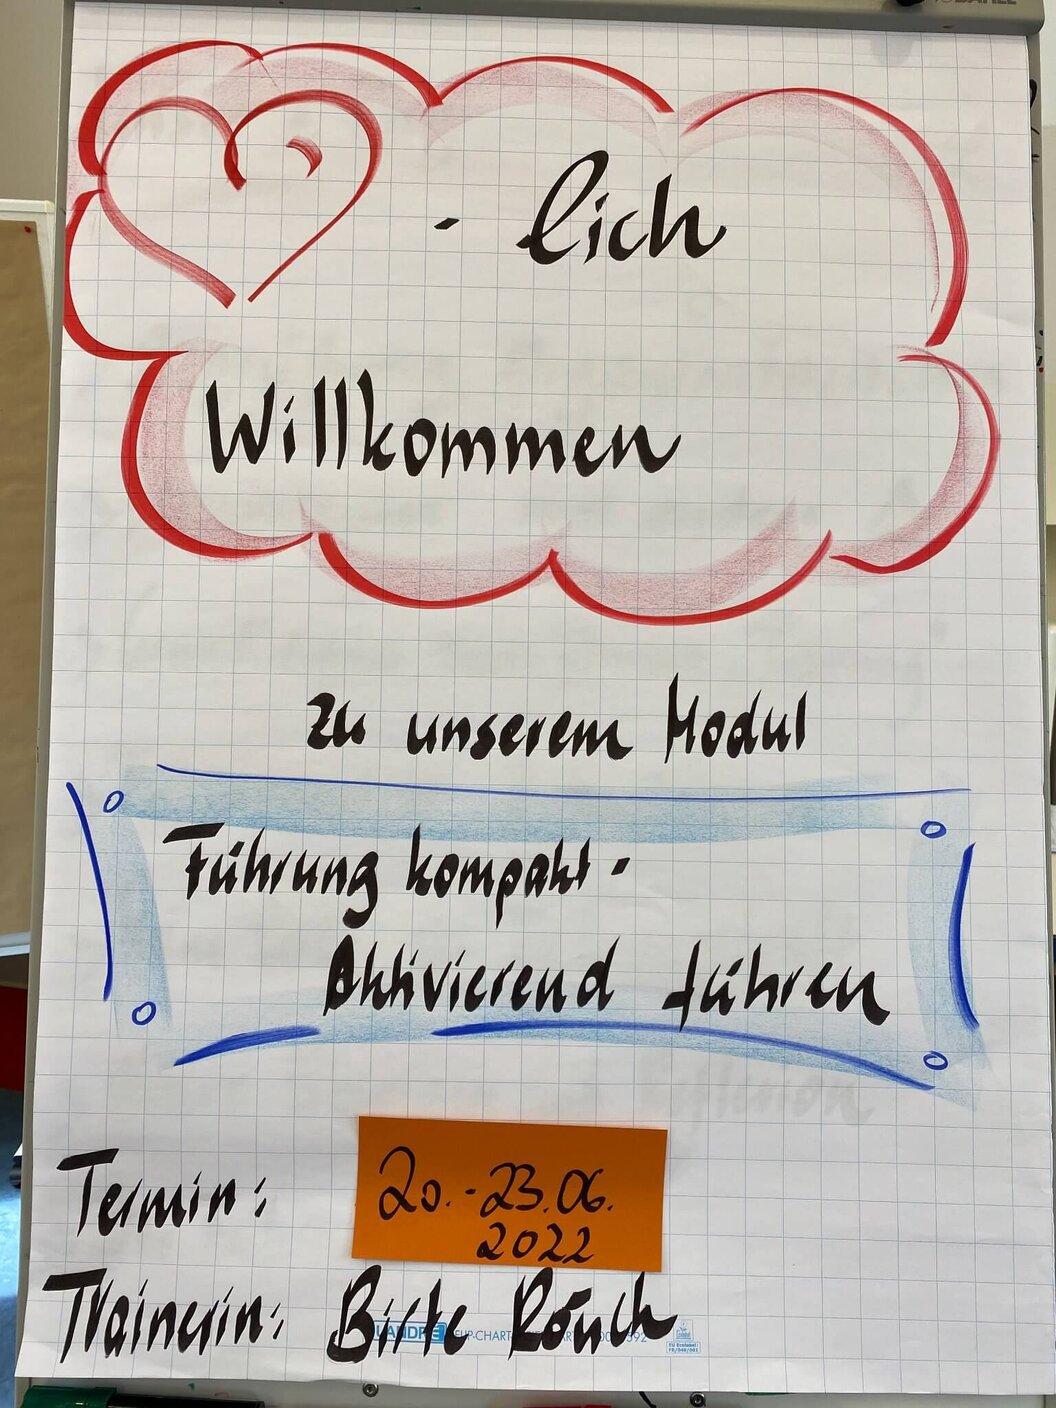 - lich
Willkommen
zu unserem Modul
Führung kompakt -
Aktivierend führen
Termin: 20.-23.06.
2022
Trainerin: Birte